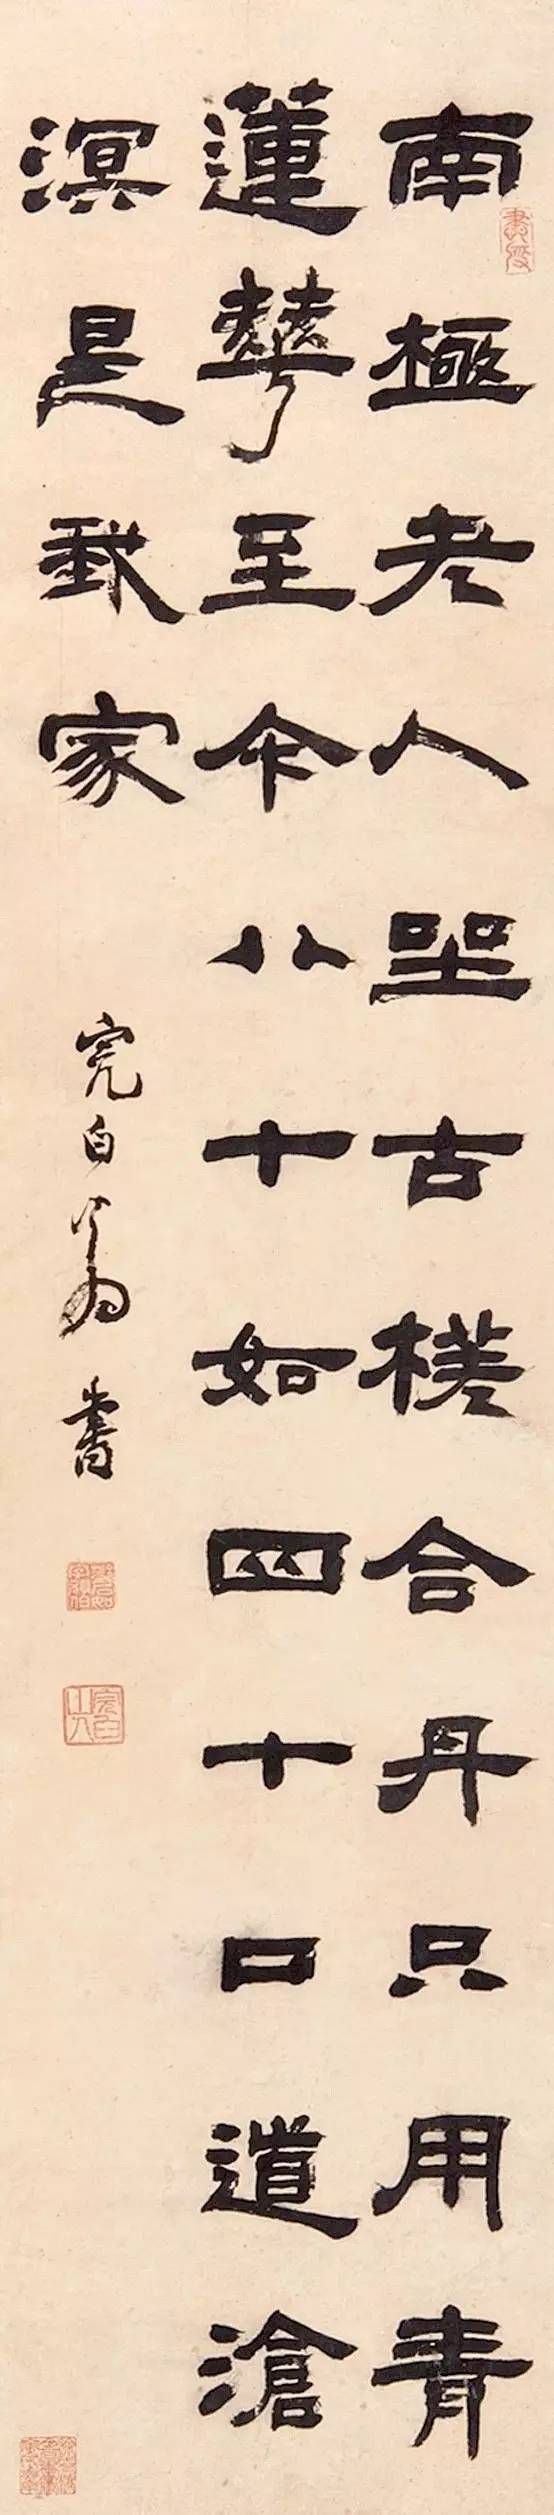 南極老人坐古槎合丹只用青
蓮華至今八十如四十口道滄
溟是我家
完白翁書
完白山人